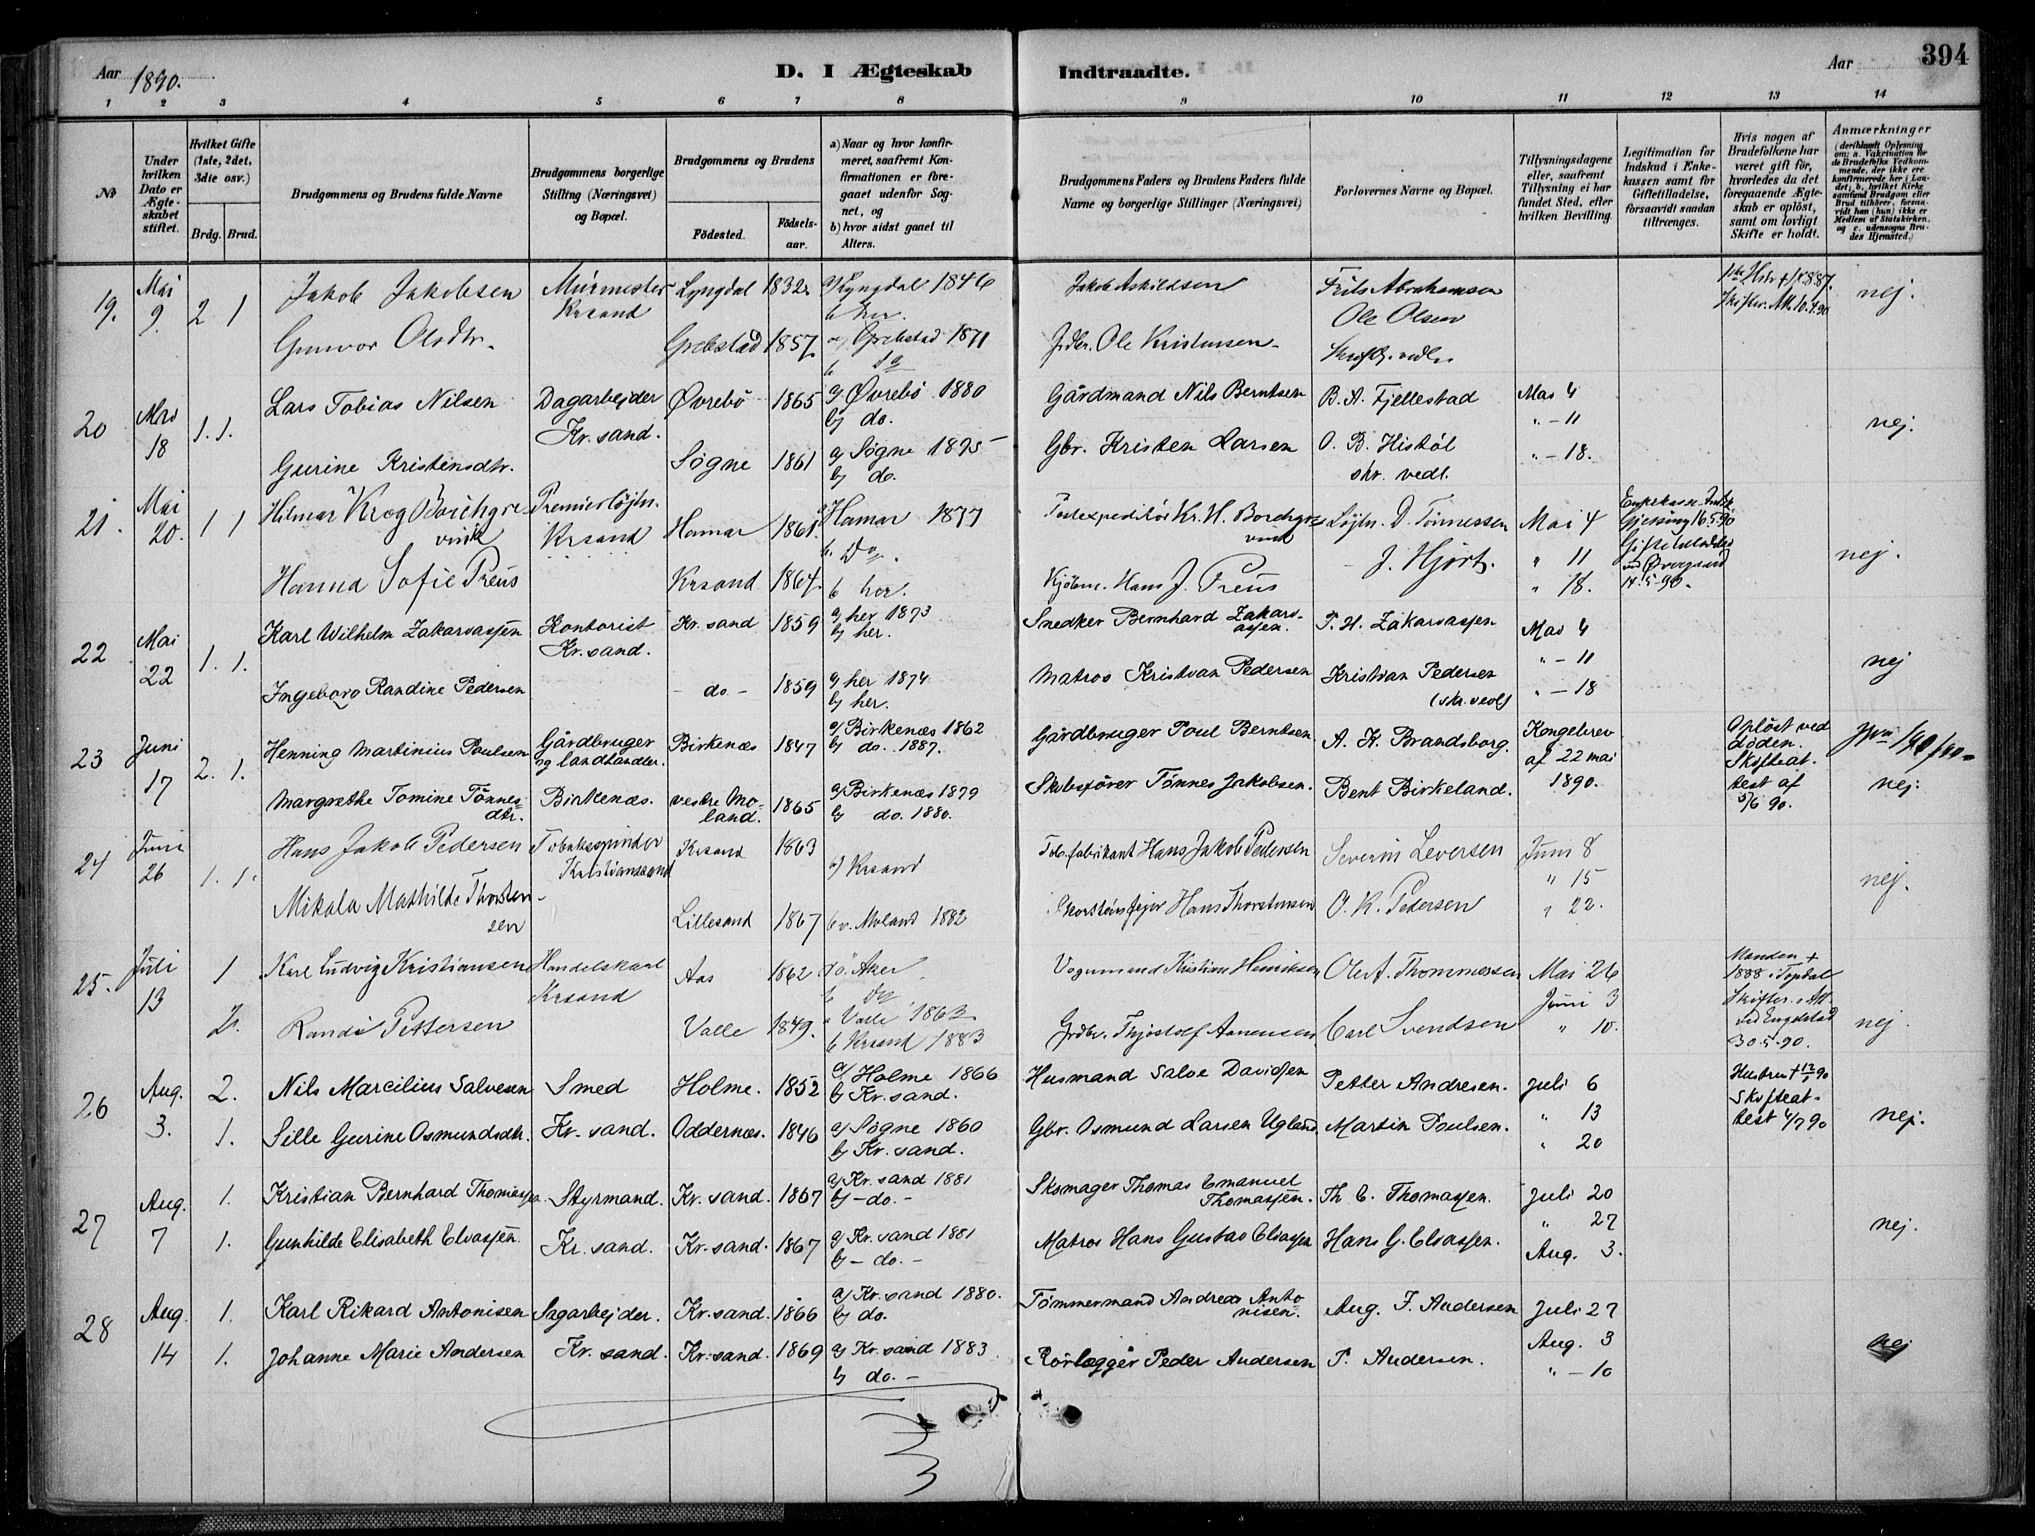 Aar 1890.
D. I Ægteskab
Indtraadte.
Aar
394
1 2 3 4 5 6 7 8 9 10 11 12 13 14
No
Under hvilken Dato er Ægteskabet stiftet.
Hvilket Gifte (1ste, 2det, 3die osv.)
Brdg. Brud.
Brudgommens og Brudens fulde Navne
Brudgommens borgerlige Stilling (Næringsvei) og Bopæl.
Brudgommens og Brudens
Födested.
Födsels-aar.
a) Naar og hvor konfirmeret, saafremt Konfirmationen er foregaaet udenfor Sognet, og
b) hvor sidst gaaet til Alters.
Brudgommens Faders og Brudens Faders fulde Navne og borgerlige Stillinger (Næringsvei)
Forlovernes Navne og Bopæl.
Tillysningsdagene eller, saafremt Tillysning ei har fundet Sted, efter hvilken Bevilling.
Legitimation for Indskud i Enkekassen samt for Giftetilladelse, forsaavidt saadan tiltrænges.
Hvis nogen af Brudefolkene har været gift för, hvorledes da det foregaaende Ægteskab er oplöst, samt om lovligt Skifte er holdt.
Anmærkninger (deriblandt Oplysning om: a. Vakcination for de Brudefolks Vedkommende, der ikke ere konfirmerede her i Landet; b. hvilket Kirkesamfund Brudgom eller Brud tilhörer, forsaavidt han (hun) ikke er Medlem af Statskirken, og c. udensogns Brudes Hjemsted.)
19. Mai 9. 2 1
Jakob Jakobsen Murmester Krsand Lyngdal 1832 a) Lyngdal 1846 b her. Jakob Askildsen Frits Abrahamsen nej.
Gunvor Olsdtr. Grebstad 1857 a) Grebstad 1871 b do Grdbr. Ole Kristensen Ole Olsen Skriftl. vedl.
20 Mai 18 1. 1.
Lars Tobias Nilsen Dagarbejder Kr.sand. Øvrebö 1865 a) Øvrebö 1880 b) do. Gårdmand Nils Berntsen B. A. Fjellestad Mai 4 " - 11 nej.
Gurine Kristensdtr. Søgne 1861 a) Søgne 1875 b) do. Gbr. Kristen Larsen O. B. Histöl skr. vedl. " - 18.
21. Mai 20. 1 1
Hilmar Krog Borchgrevink Premierløjtn. Krsand Hamar 1861. Hamar 1877 b. Do. Postexpeditör Kr. H. Borchgrevink Løjtn. D. Tönnessen Mai 4 " 11 nej.
Hanna Sofie Preus Krsand 1864. b her. Kjöbm. Hans J. Preus J. Hjort. " 18. Gjessing 16.5.90 ved Øvergaard 14.5.90.
22 Mai 22 1. 1.
Karl Wilhelm Zakariassen Kontorist Kr.sand. Kr. sand 1859 a) her 1873 b) her. Snedker Bernhard Zakariassen. P. H. Zakariassen Mai 4 " - 11 nej
Ingeborg Randine Pedersen - do. - 1859 a) her 1874 b) her. Matros Kristian Pedersen Kristian Pedersen (skr. vedl) " - 18
23 Juni 17 2. 1.
Henning Martinius Poulsen Gårdbruger og landhandler. Birkenæs 1847 a) Birkenæs 1862 b) do. 1887. Gårdbruger Poul Berntsen A. K. Brandsborg. Kongebrev af 22 mai 1890. Oplöst ved döden. Skifteattest af 5/6 90. nej.
Margrethe Tomine Tönnesdtr. Birkenæs. vestre Moland. 1865 a) Birkenæs 1879 b) do. 1880. Skibsförer Tönnes Jakobsen. Bent Birkeland.
24 Juni 26 1. 1.
Hans Jakob Pedersen Tobaksspinder Kristianssand Krsand 1863 a) Krsand Tob.fabrikant Hans Jakob Pedersen Severin Leversen Juni 8 " 15 nej.
Mikala Mathilde Thorstensen Lillesand 1867 b v. Moland 1882 Skorstensfejer Hans Thorstensen O. K. Pedersen " 22.
25. Juli 13 1 2.
Karl Ludvig Kristiansen Handelskarl Krsand Aas 1862 a ö. Aker b do Vognmand Kristian Henriksen Ole A. Thommessen Mai 26 Manden + 1888 i Topdal
Randi Pettersen Valle 1849. a Valle 1863 b Krsand 1883 Grdbr. Thjostolf Aanensen Carl Svendsen Juni 3 " 10. Skifter. Att. ved Engelstad 30.5.90. nej.
26 Aug. 3. 2. 1.
Nils Marcilius Salvesen Smed Holme. 1852 a) Holme 1866 b) Kr. sand. Husmand Salve Davidsen Petter Andresen. Juli 6 Hustru + 12/1 90 Skifteattest 4/7 90
Sille Gurine Osmundsdtr. Kr. sand. Oddernæs. 1846 a) Søgne 1860 b) Kr. sand. Gbr. Osmund Larsen Ugland Martin Poulsen. " 13 " 20 nej.
27 Aug. 7 1. 1.
Kristian Bernhard Thomassen Styrmand. Kr. sand. 1867 a) Kr. sand 1881 b) - do. - Skomager Thomas Emanuel Thomassen. Th E. Thomassen. Juli 20 " 27 nej.
Gunhilde Elisabeth Eliassen Kr. sand. Kr. sand. 1867 a) Kr. sand 1881 b) - do. - Matros Hans Gustav Eliassen Hans G. Eliassen. Aug. 3.
28 Aug. 14 1. 1.
Karl Rikard Antonisen Sagarbejder. Kr. sand. 1866 a) Kr. sand 1880. b) do. Tömmermand Andreas Antonisen. Aug. T. Andersen Juli 27
Johanne Marie Andersen Kr. sand. Kr. sand. 1869 a) Kr. sand 1883 b) do. - Rörlægger Peder Andersen P. Andersen. Aug. 3 " - 10 nej